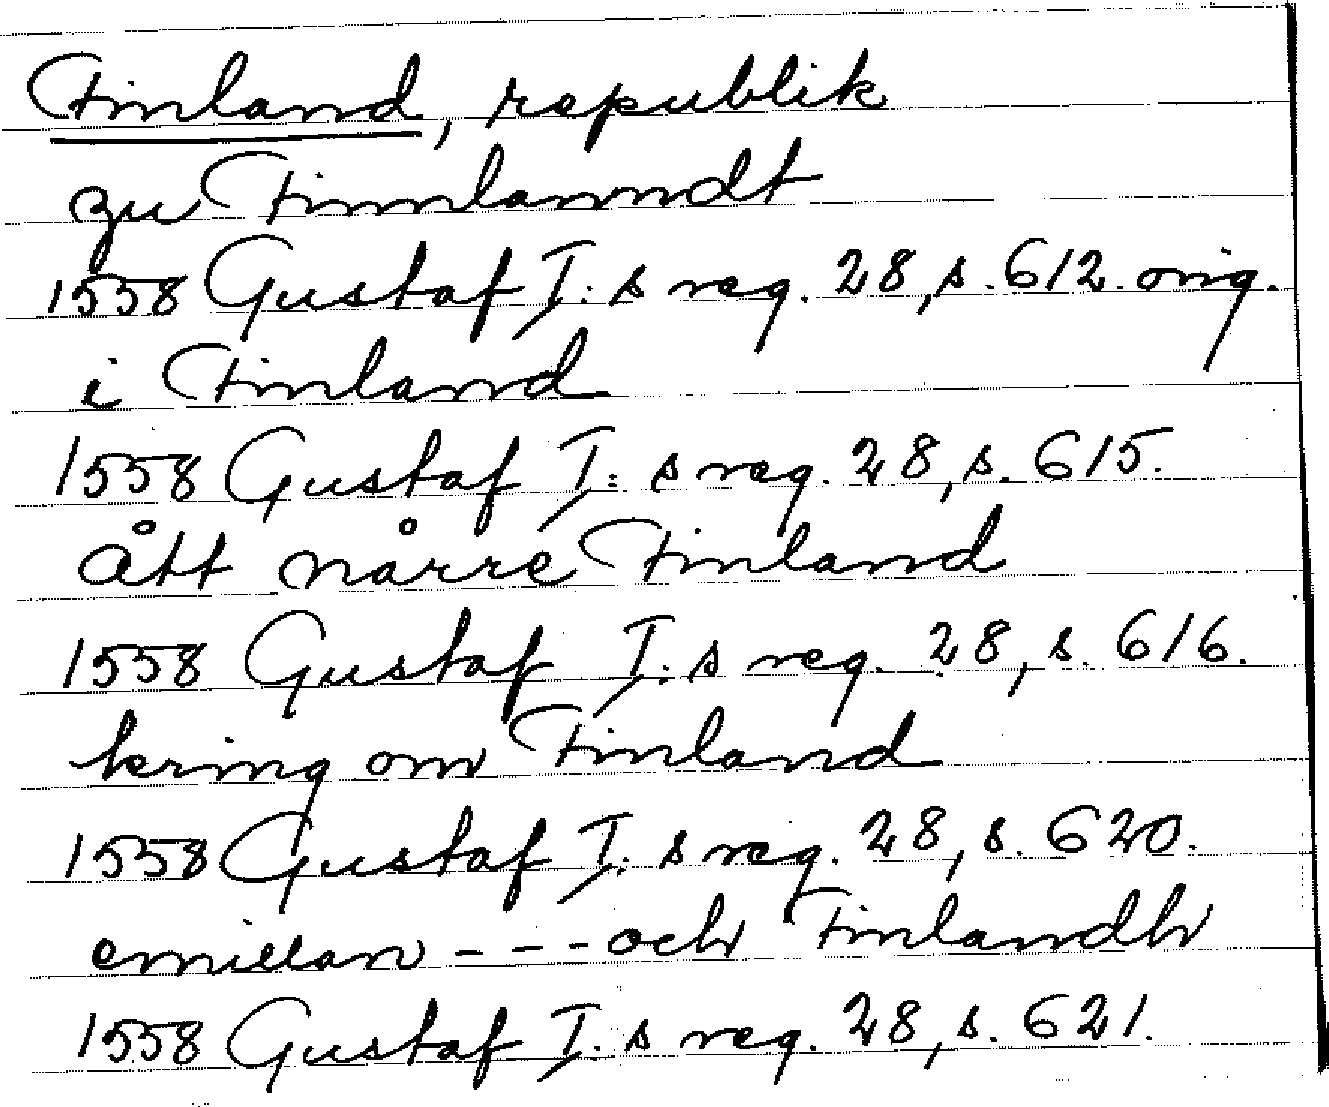 Finland, republik
zu Finnlanndt
1558 Gustaf I:s reg. 28, s. 612. orig.
i Finland
1558 Gustaf I:s reg. 28, s. 615.
ått nårre Finland
1558 Gustaf I:s reg. 28, s. 616.
kring om Finland
1558 Gustaf I:s reg. 28, s. 620.
emillan - - - och Finlandh
1558 Gustaf I:s reg. 28, s. 621.